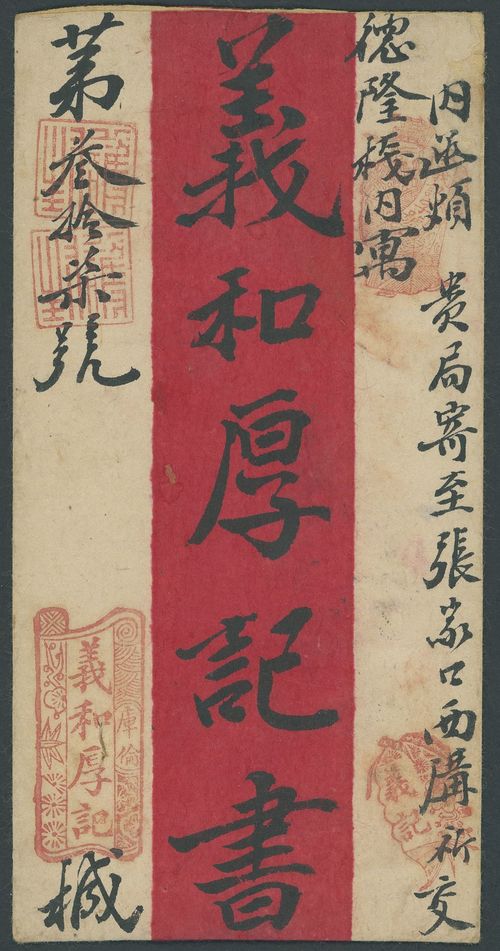 内函煩 貴局寄至張家口西溝祈交
德隆棧内寓
義和厚記書
第叁拾柒號
椷
庫倫
義和厚記
義記